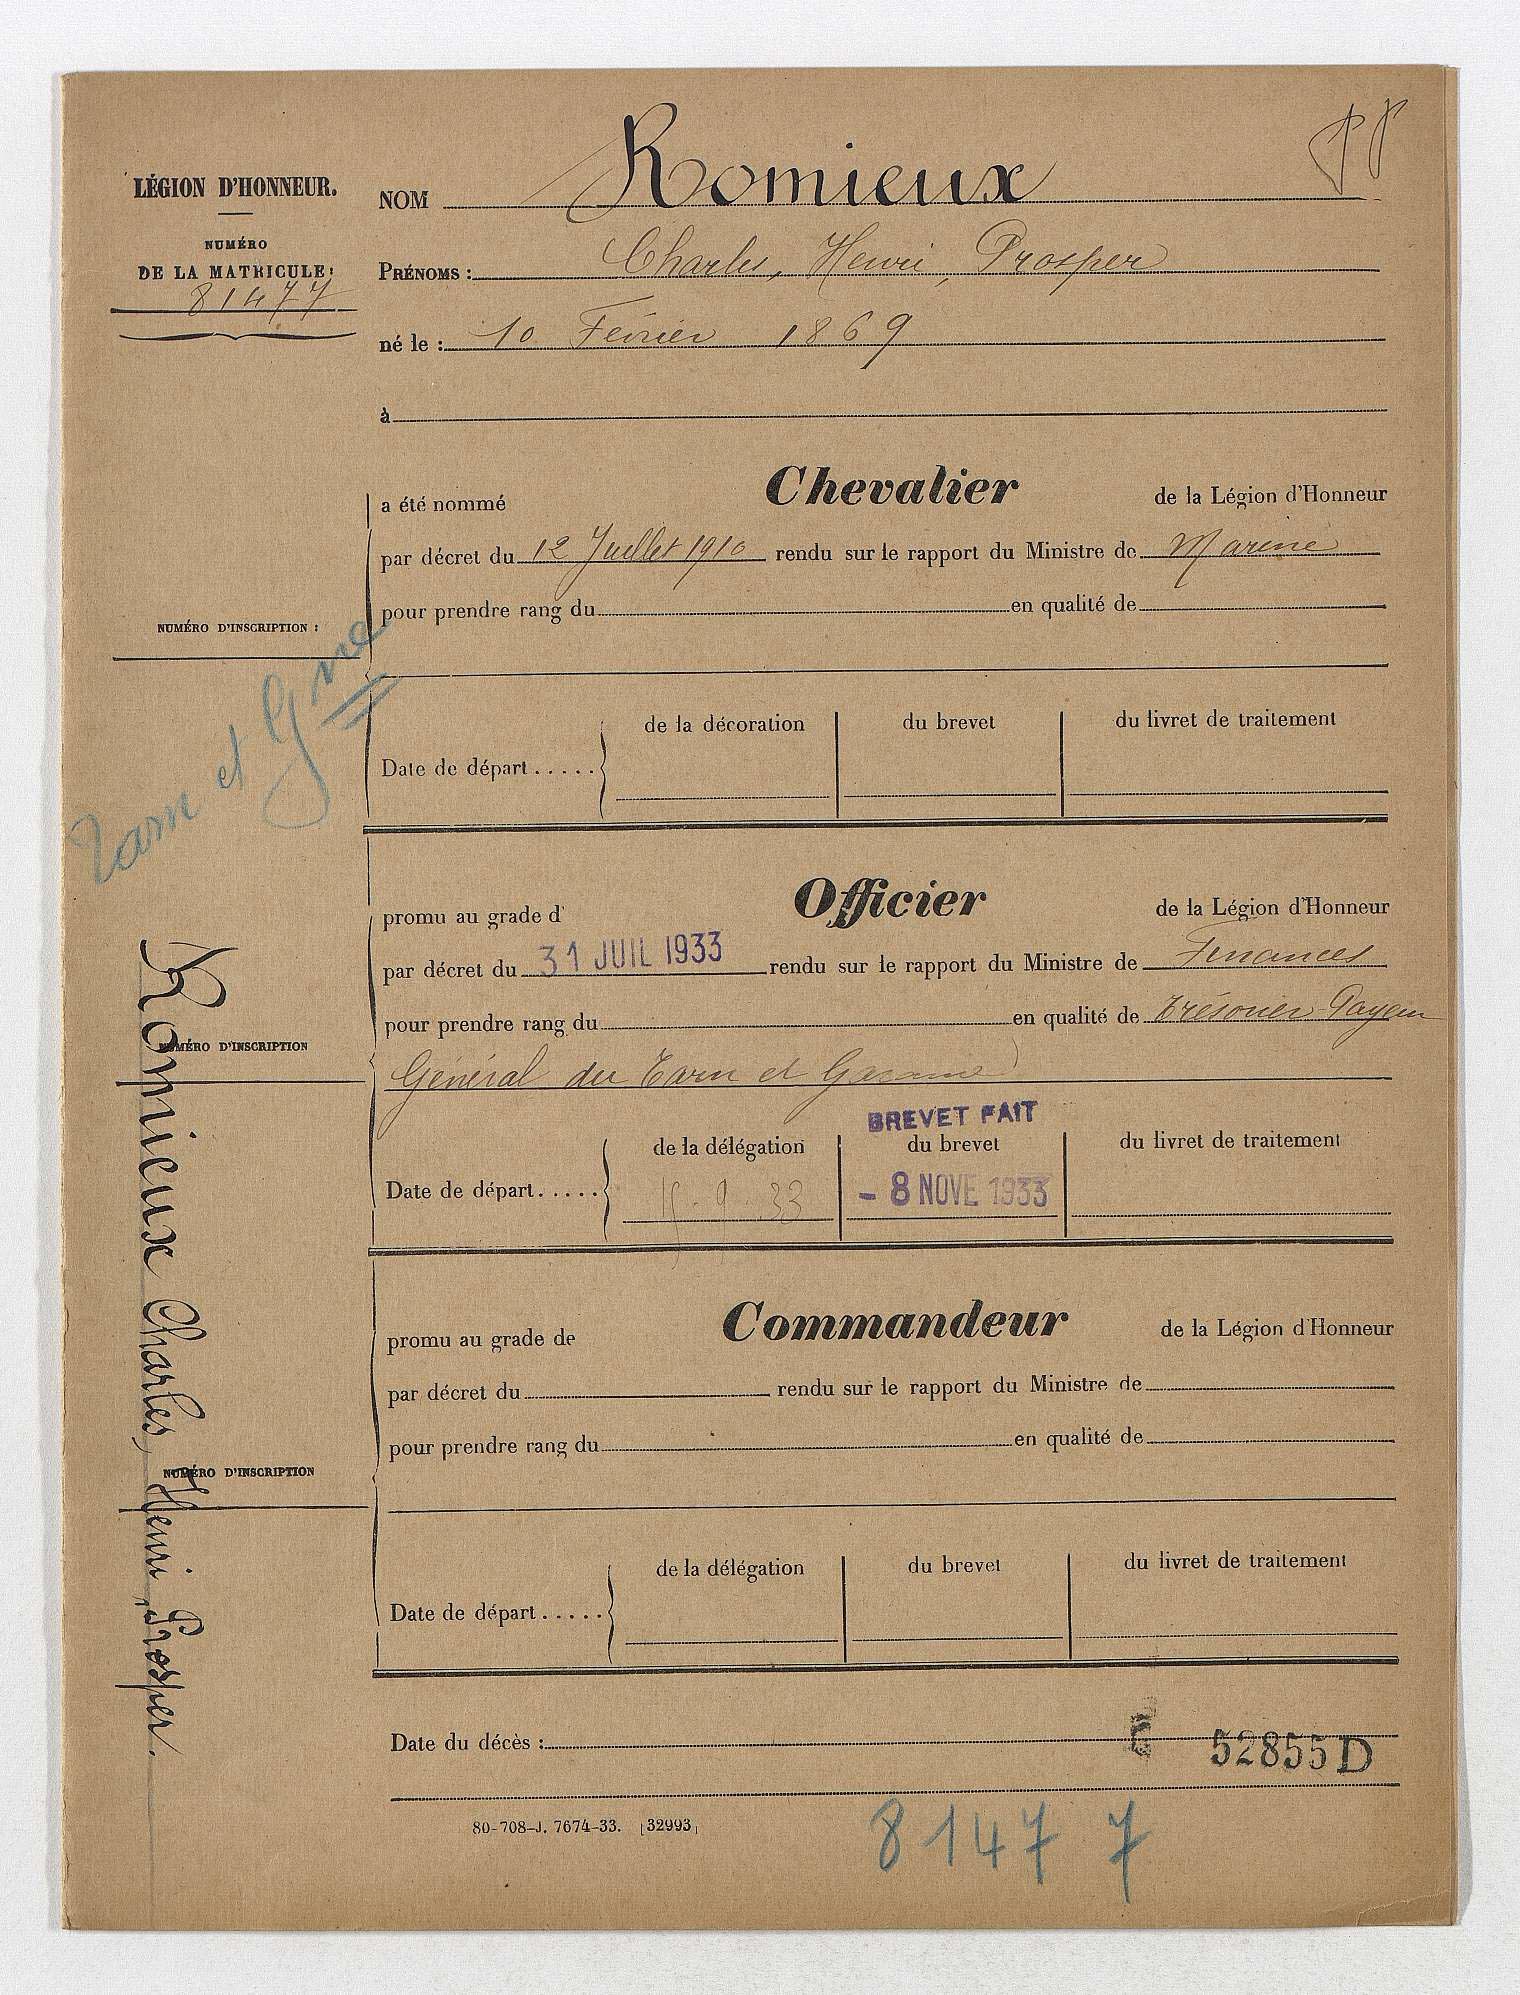 LÉGION D'HONNEUR.
NUMÉRO
DE LA MATRICULE:
81477
NOM Romieux
PRÉNOMS : Charles, Henri, Prosper
né le : 10 Février 1869
à
a été nommé Chevalier de la Légion d'Honneur
par décret du 12 Juillet 1910 rendu sur le rapport du Ministre de Marine
pour prendre rang du en qualité de
NUMÉRO D'INSCRIPTION :
Tarn et Gne
de la décoration du brevet du livret de traitement
Date de départ.....
promu au grade d' Officier de la Légion d'Honneur
par décret du 31 JUIL 1933 rendu sur le rapport du Ministre de Finances
pour prendre rang du en qualité de Trésorier-Payeur
NUMÉRO D'INSCRIPTION
Général du Tarn et Garonne
BREVET FAIT
de la délégation du brevet du livret de traitement
Date de départ..... - 9 - 33 - 8 NOVE 1933
promu au grade de Commandeur de la Légion d'Honneur
par décret du rendu sur le rapport du Ministre de
pour prendre rang du en qualité de
NUMÉRO D'INSCRIPTION
de la délégation du brevet du livret de traitement
Date de départ.....
Date du décès :
52855 D
80-708-J. 7674-33. [32993]
81477
Romieux Charles, Henri, Prosper.